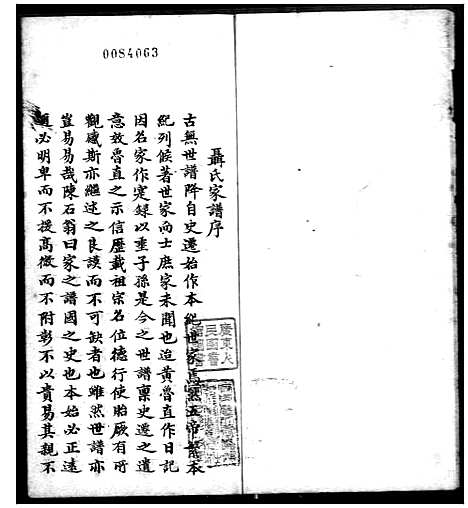 0084063
聶氏家譜序
古無世譜降自史遷始作本紀世家焉然五帝繫本
紀列侯著世家而士庶家未聞也迨黃魯直作日記
因名家作寔録以垂子孫是今之世譜稟史遷之遺
意效魯直之示信歷載祖宗名位德行使貽厥有所
觀感斯亦繼述之良謨而不可缺者也雖然世譜亦
豈易易哉陳石翁曰家之譜國之史也本始必正遠
必明卑而不援高微而不附彰不以貴易其親不
廣東人
民圖書